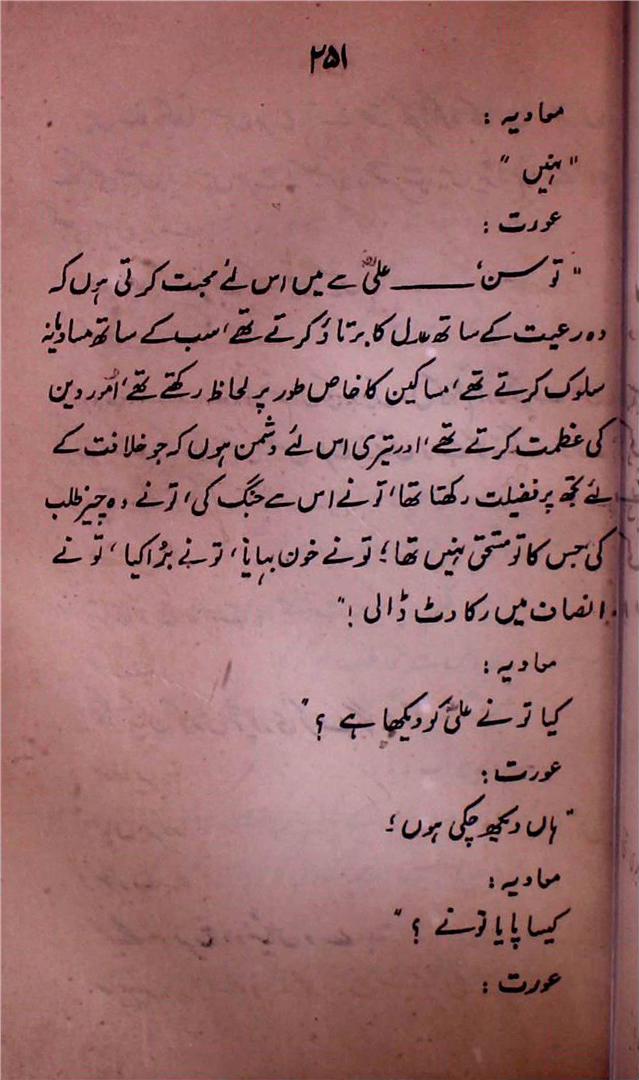 ۲۵۱
معاویہ :
"نہیں"
عورت :
"تو سن، ــــــ علیؓ سے میں اس لئے محبت کرتی ہوں کہ
وہ رعیت کے ساتھ عدل کا برتاؤ کرتے تھے، سب کے ساتھ مساویانہ
سلوک کرتے تھے، مساکین کا خاص طور پر لحاظ رکھتے تھے، اُمور دین
کی عظمت کرتے تھے، اور تیری اس لئے دشمن ہوں کہ جو خلافت کے
لئے تجھ پر فضیلت رکھتا تھا، تو نے اس سے جنگ کی، تو نے وہ چیز طلب
کی جس کا تو مستحق نہیں تھا؛ تو نے خون بہایا، تو نے بُرا کیا، تو نے
انصاف میں رکاوٹ ڈالی !"
معاویہ :
کیا تو نے علیؓ کو دیکھا ہے ؟"
عورت :
"ہاں دیکھ چکی ہوں ؛
معاویہ :
کیسا پایا تو نے ؟"
عورت :